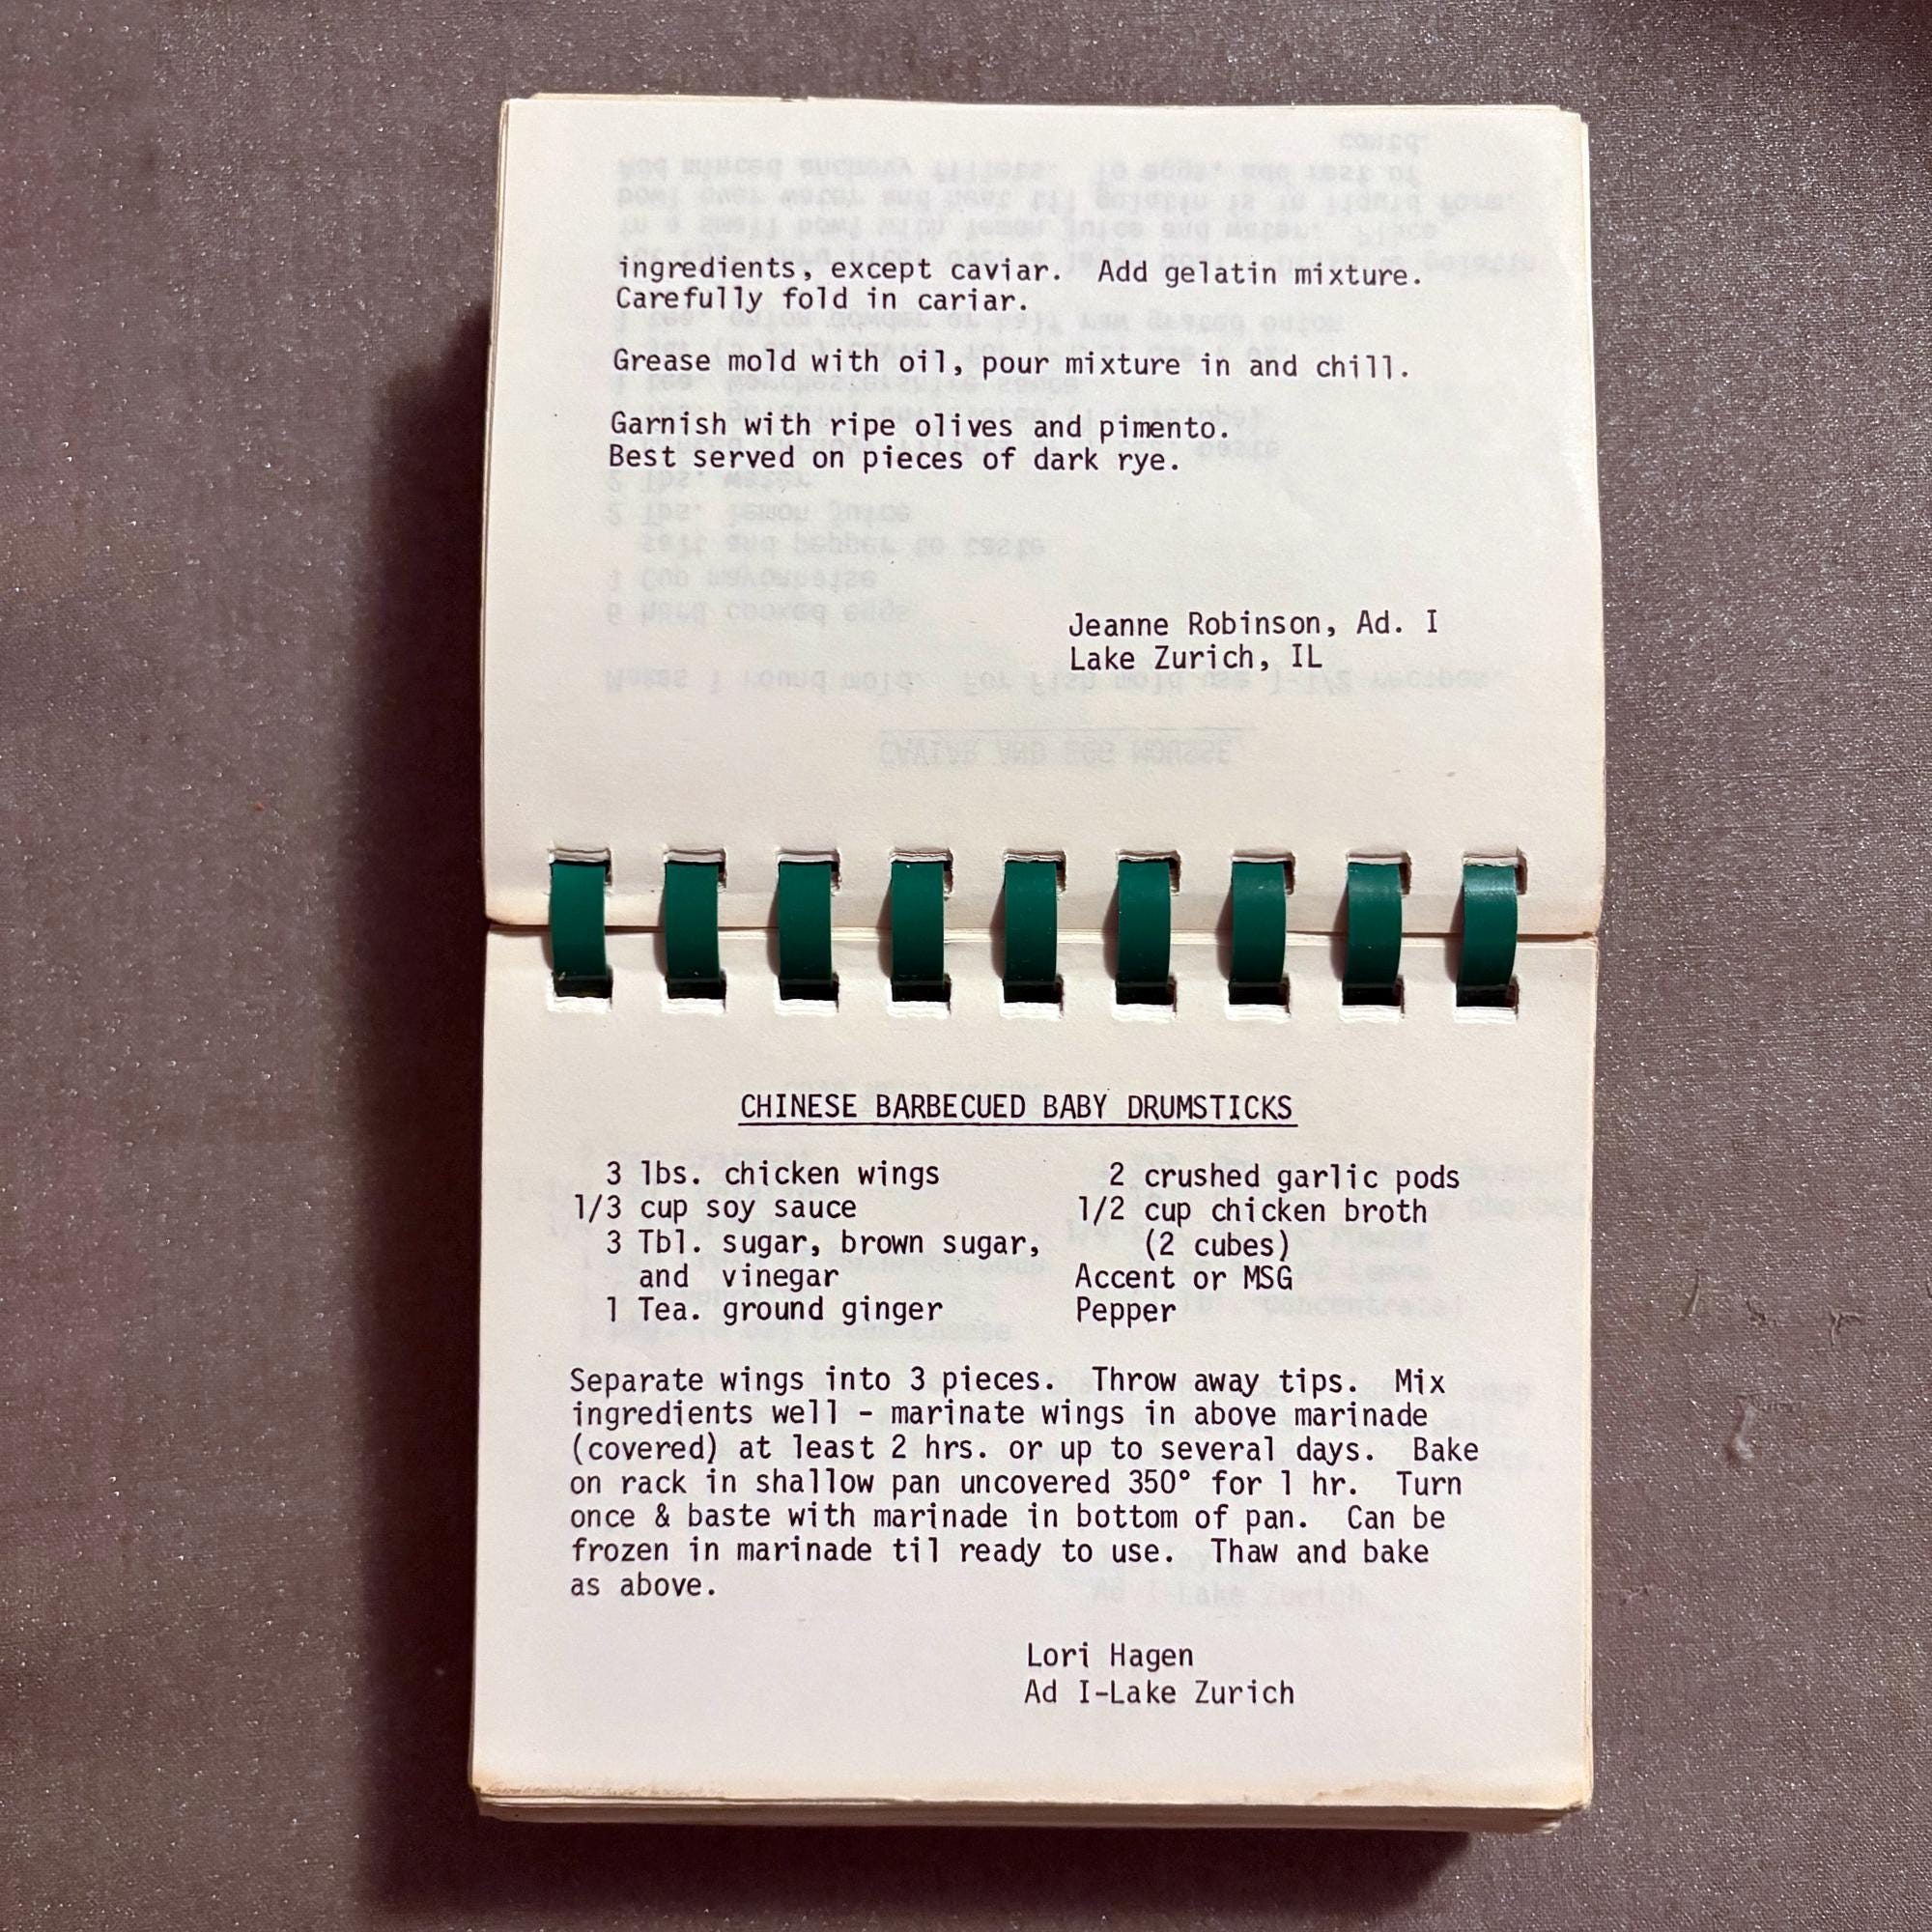 ingredients, except caviar.  Add gelatin mixture.
Carefully fold in cariar.
Grease mold with oil, pour mixture in and chill.
Garnish with ripe olives and pimento.
Best served on pieces of dark rye.
Jeanne Robinson, Ad. I
Lake Zurich, IL
CHINESE BARBECUED BABY DRUMSTICKS
3 lbs. chicken wings
1/3 cup soy sauce
3 Tbl. sugar, brown sugar,
and vinegar
1 Tea. ground ginger
2 crushed garlic pods
1/2 cup chicken broth
(2 cubes)
Accent or MSG
Pepper
Separate wings into 3 pieces.  Throw away tips.  Mix
ingredients well - marinate wings in above marinade
(covered) at least 2 hrs. or up to several days.  Bake
on rack in shallow pan uncovered 350° for 1 hr.  Turn
once & baste with marinade in bottom of pan.  Can be
frozen in marinade til ready to use.  Thaw and bake
as above.
Lori Hagen
Ad I-Lake Zurich